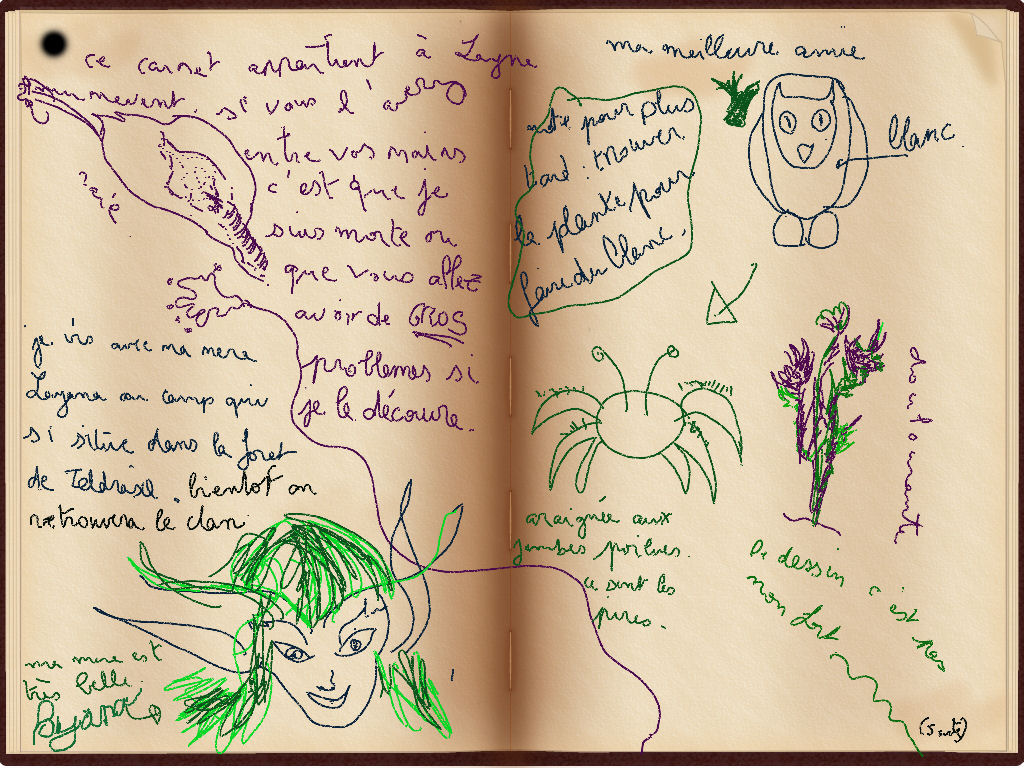 ce carnet appartient à Layna
si vous l'avez
entre vos mains
c'est que je
suis morte ou
que vous allez
avoir de GROS
problemes si
je le découvre.
je vis avec ma mere
Layana au camp qui
si situe dans la foret
de Teldrasil. bientot on
retrouvera le clan
ma mere est
très belle
ma meilleure amie
note pour plus
tard : trouver
la plante pour
faire du blanc.
blanc
araignée aux
jambes poilues.
ce sont les
pires.
le dessin c'est pas
mon fort
(suite)